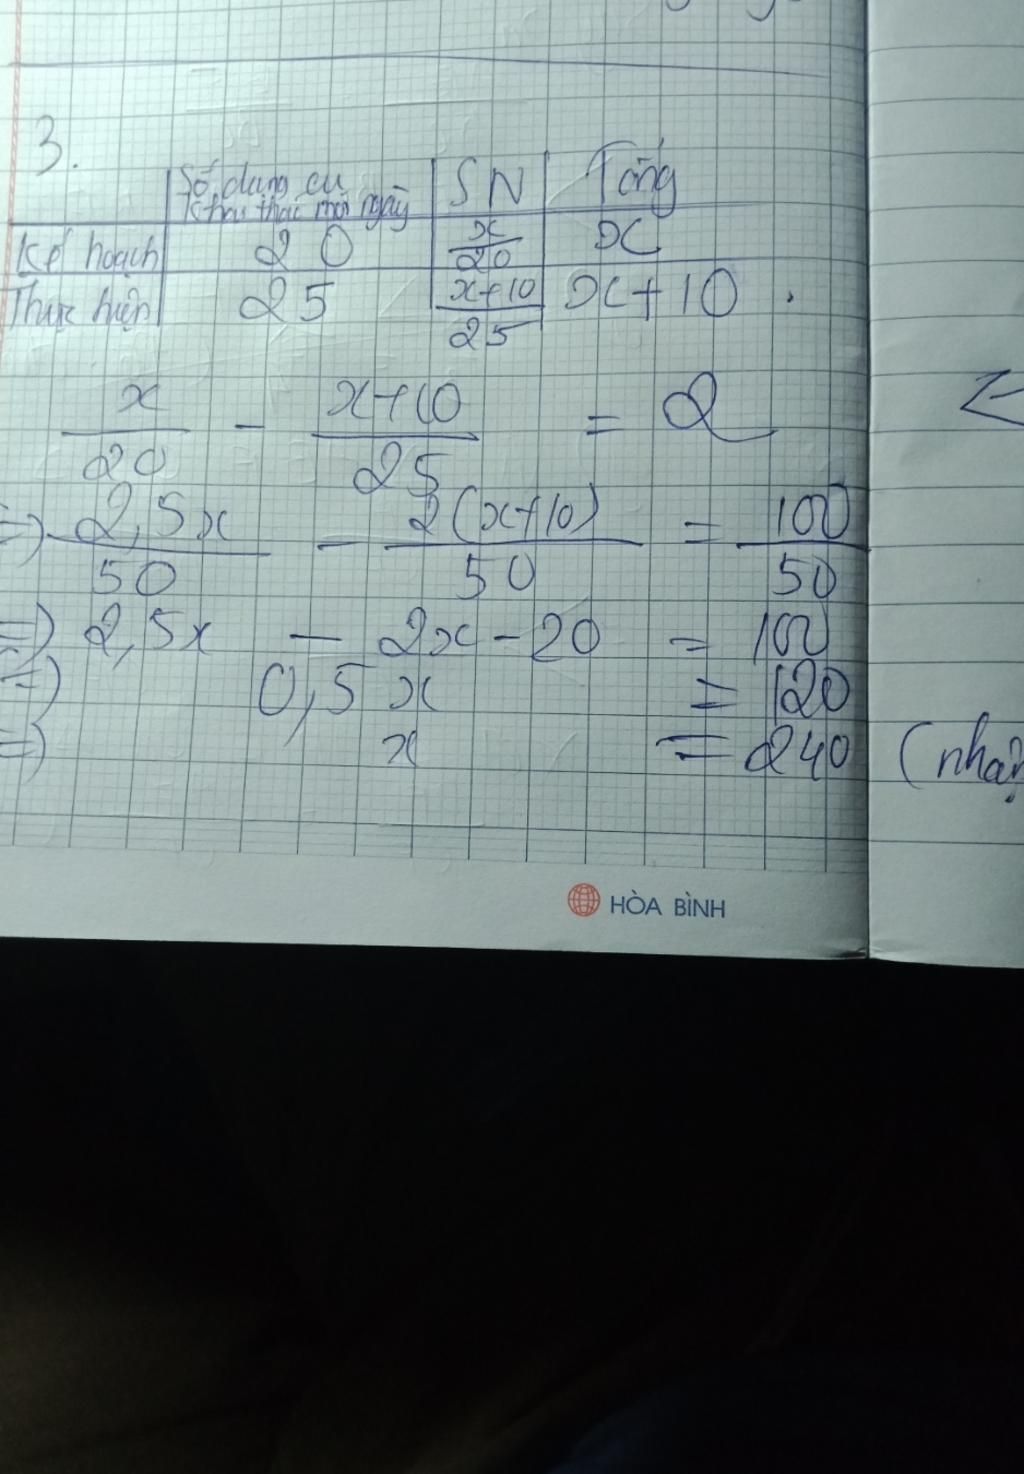 3.
Số dụng cụ
mỗi ngày
SN
Tổng
Kế hoạch 20 x/20 x
Thực hiện 25 x+10/25 x+10.
x/20 - x+10/25 = 2
=) 2,5x/50 - 2(x+10)/50 = 100/50
=) 2,5x - 2x - 20 = 100
=) 0,5x = 120
=) x = 240 (nhận
HÒA BÌNH